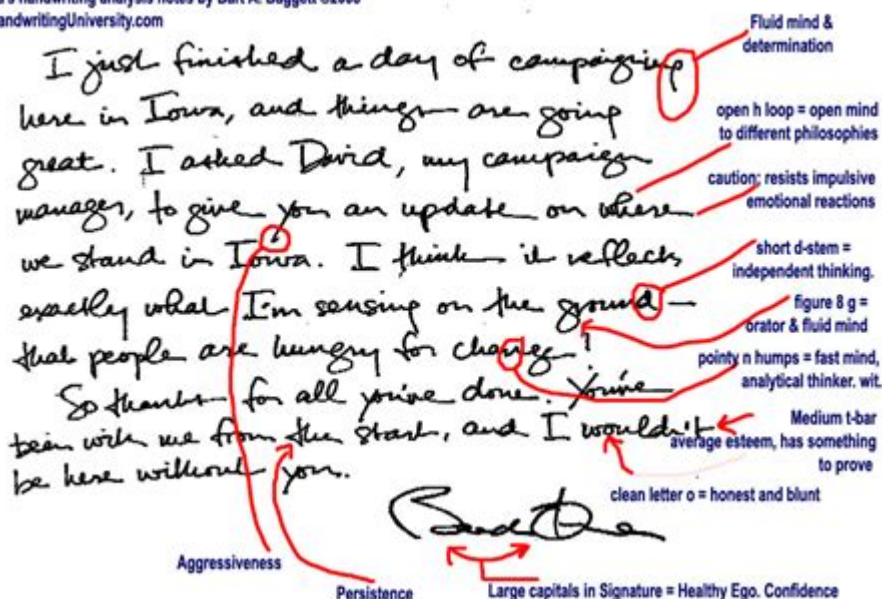 's handwriting analysis notes by Bart A. Baggett ©2008
andwritingUniversity.com
I just finished a day of campaigning
here in Iowa, and things are going
great. I asked David, my campaign
manager, to give you an update on where
we stand in Iowa. I think it reflects
exactly what I'm sensing on the ground —
that people are hungry for change!
So thanks for all you've done. You've
been with me from the start, and I wouldn't
be here without you.
Fluid mind &
determination
open h loop = open mind
to different philosophies
caution; resists impulsive
emotional reactions
short d-stem =
independent thinking.
figure 8 g =
orator & fluid mind
pointy n humps = fast mind,
analytical thinker. wit.
Medium t-bar
average esteem, has something
to prove
clean letter o = honest and blunt
Aggressiveness
Persistence
Large capitals in Signature = Healthy Ego. Confidence